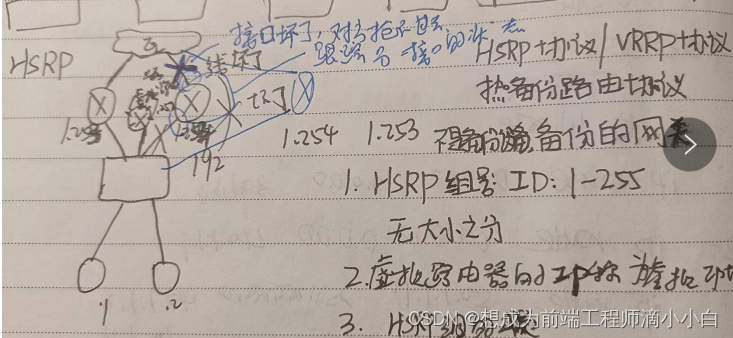 HSRP
接口坏了,对方抢不过去
跟踪另一接口的状态
线坏了
坏了
HSRP协议/VRRP协议
热备份路由协议
1.254 1.253
备份的网关
192
1. HSRP组号: ID: 1-255
无大小之分
2.虚拟路由器的IP称为虚拟IP地
3. HSRP组的
.1 .2
CSDN @想成为前端工程师滴小小白